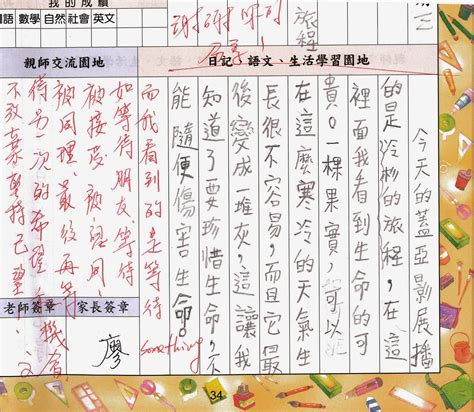 我的成績
語 數學 自然 社會 英文
三
旅程
謝謝你的
分享!
日記、語文、生活學習園地
今天的蓋亞影展播
的是冷杉的旅程,在這
裡面我看到生命的可
貴。一棵果實,可以
在這麼寒冷的天氣生
長很不容易,而且它最
後變成一堆灰,這讓我
知道了要珍惜生命,不
能隨便傷害生命。
親師交流園地
而我看到的是等待
something
如等待朋友、等待
被接受、被認同、
被同理、最後再等
待另一次的希望、機會
不放棄堅持
老師簽章
家長簽章
廖
34